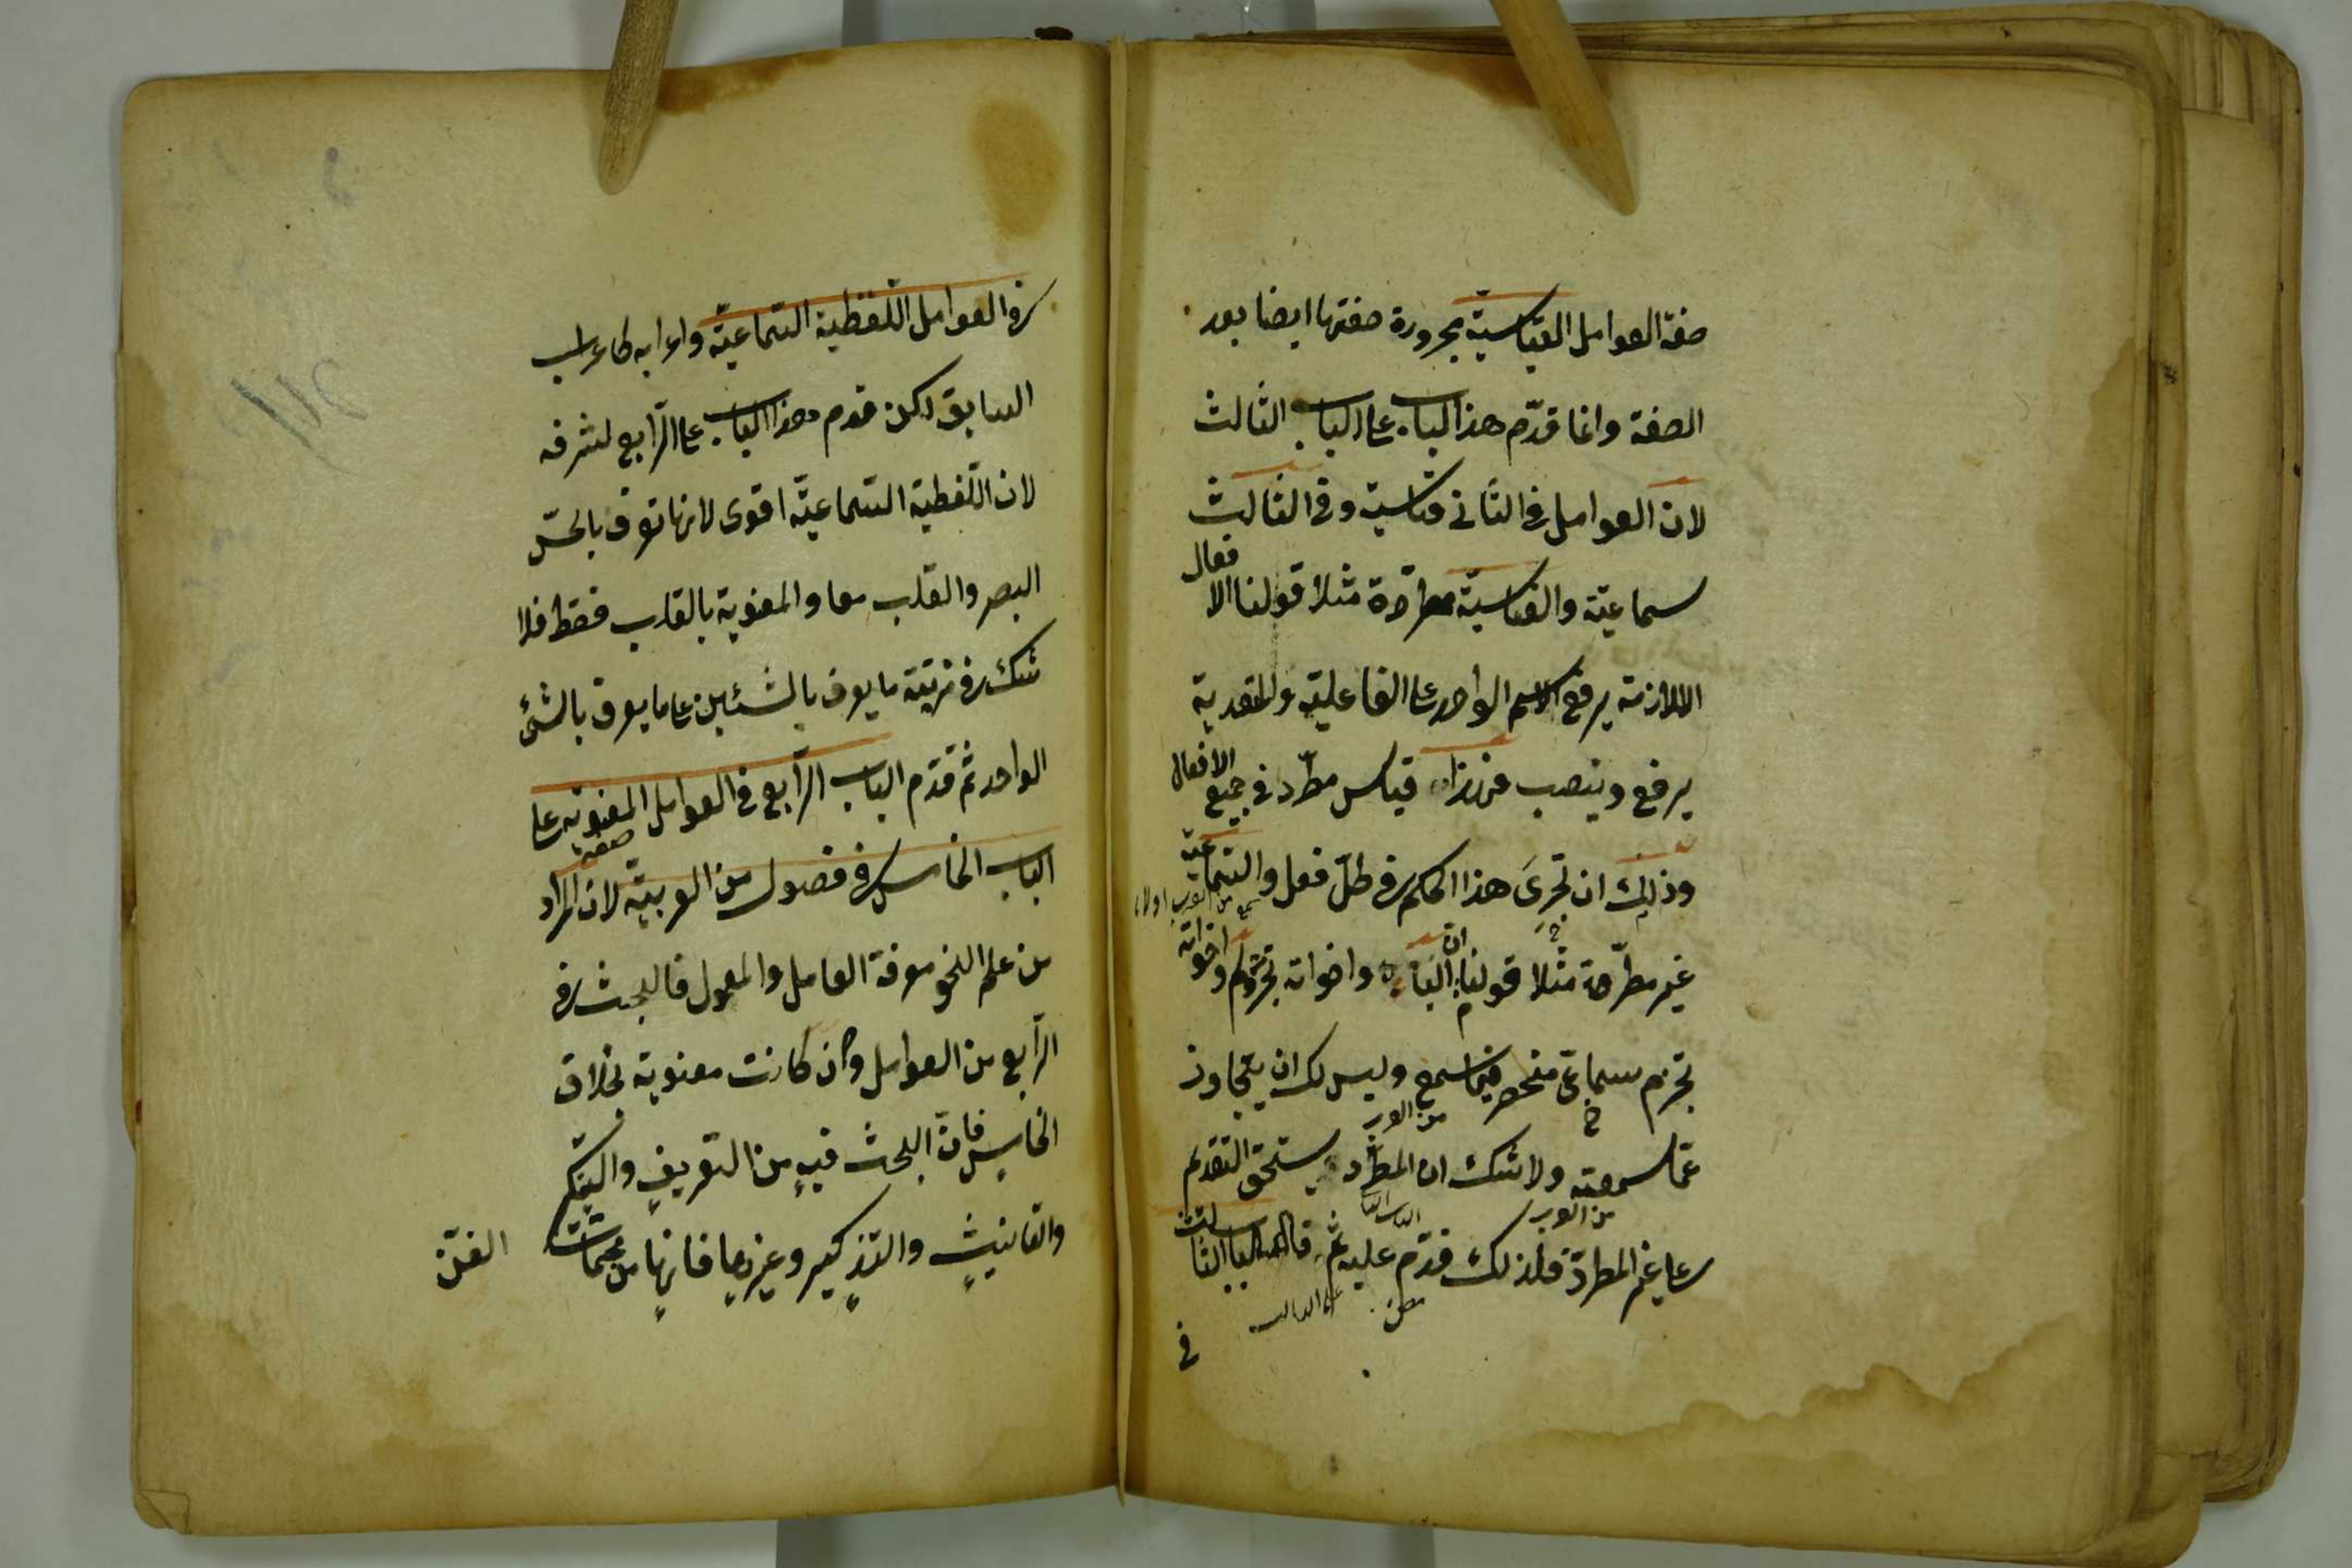 صفة العوامل القياسية مجرورة صفتها ايضا بعد
الصفة وانما قدّم هذا الباب على الباب الثالث
لان العوامل في الثاني قياسية وفي الثالث
سماعيّة والقياسيّة مطّردة مثلا قولنا الافعال
اللازمة يرفع الاسم الواحد على الفاعلية والمتعدية
يرفع وينصب قياس مطّرد في جميع الافعال
وذلك ان تجرى هذا الحكم في كلّ فعل والسّماعيّة
غير مطّردة مثلا قولنا ان الباء واخواته تجرّ ولم واخواته
تجزم سماعىّ منحصر فيما سمع وليس لك ان يتجاوز
من العرب
عمّا سمعته ولا شك ان المطّرد يستحق التقديم
من العرب
على غير المطردة فلذلك قدّم عليه ثم قال الباب الثالث
في
في العوامل اللّفظية السّماعيّة واعرابه كاعراب
السابق لكن قدم هذا الباب على الرّابع لشرفه
لان اللّفظية السّماعيّة اقوى لانها تعرف بالحسّ
البصر والقلب معا والمعنوية بالقلب فقط فلا
شك في مزيّة ما يعرف بالشئين على ما يعرف بالشئ
الواحد ثم قدّم الباب الرّابع في العوامل المعنويّة على
الباب الخامس في فصول من العربيّة لان المراد
من علم النحو معرفة العامل والمعمول فالبحث في
الرّابع من العوامل وان كانت معنوية بخلاف
الخامس فانّ البحث فيه من التعريف والتنكير
والتانيث والتذكير وغيرها فانها من متمّمات
الفنّ